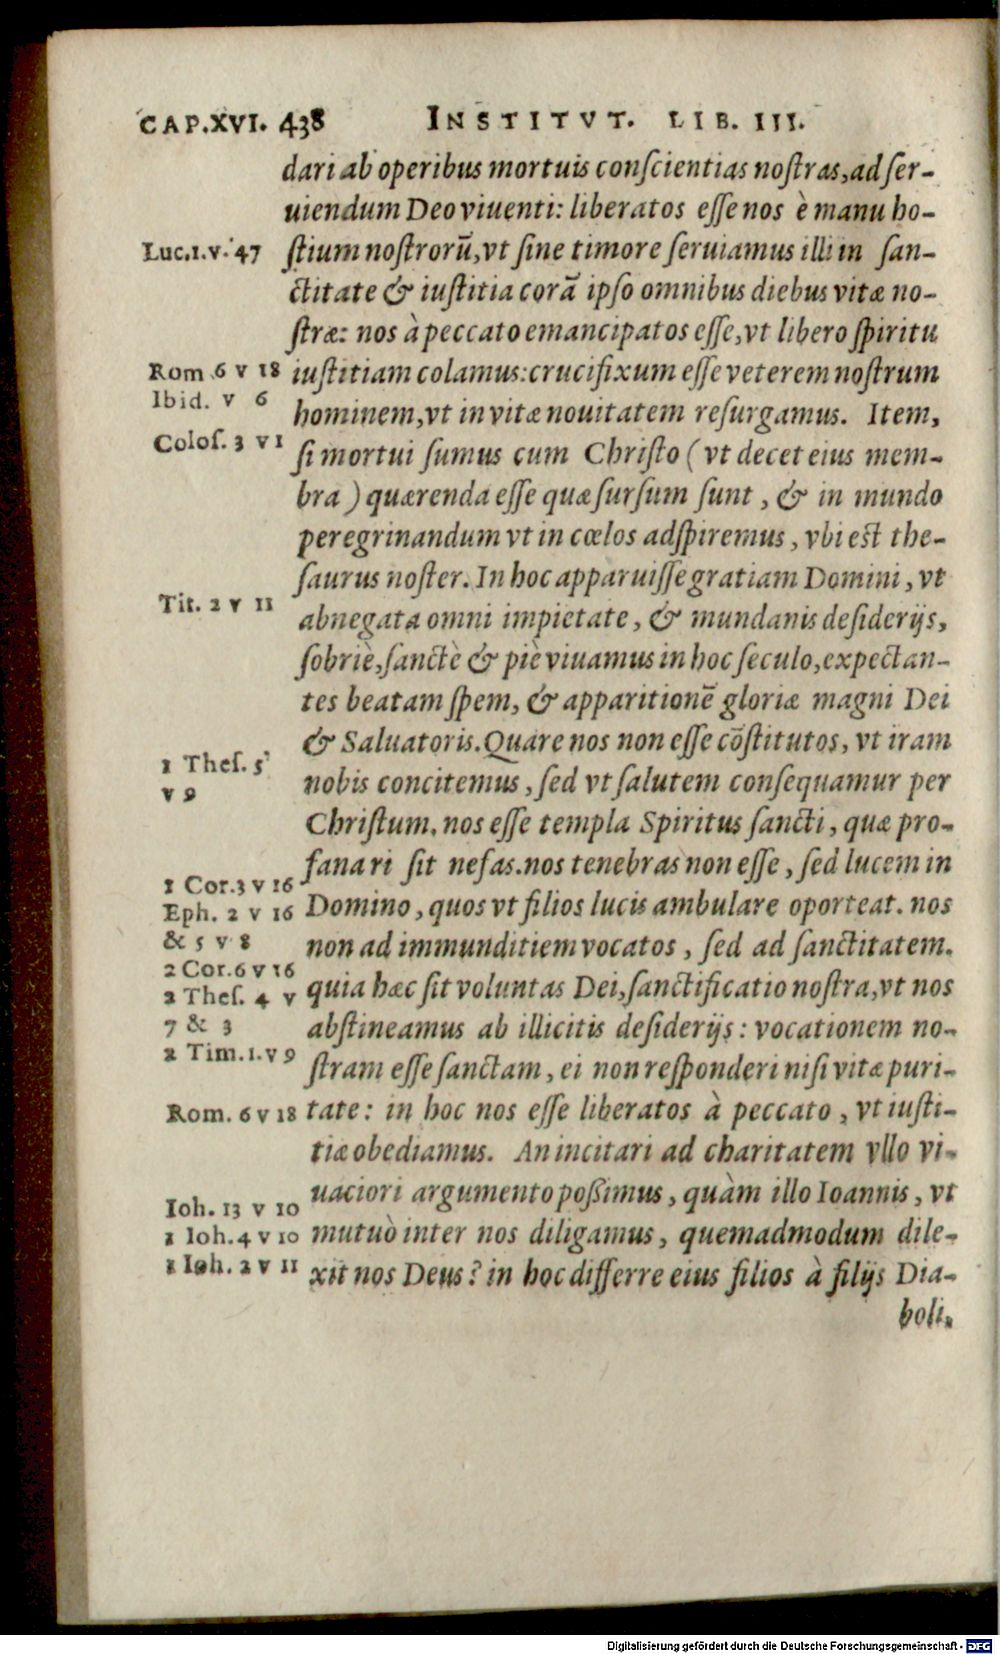 CAP.XVI. 438 INSTITVT. LIB. III.
dari ab operibus mortuis conſcientias noſtras, ad ſer-
uiendum Deo viuenti: liberatos eſſe nos è manu ho-
Luc.1.v.47
ſtium noſtrorũ, vt ſine timore ſeruiamus illi in ſan-
ctitate & iuſtitia corã ipſo omnibus diebus vitæ no-
ſtræ: nos à peccato emancipatos eſſe, vt libero ſpiritu
Rom 6 v 18
iuſtitiam colamus: crucifixum eſſe veterem noſtrum
Ibid. v 6
hominem, vt in vitæ nouitatem reſurgamus. Item,
Coloſ. 3 v 1
ſi mortui ſumus cum Chriſto ( vt decet eius mem-
bra ) quærenda eſſe quæ ſurſum ſunt, & in mundo
peregrinandum vt in cœlos adſpiremus, vbi eſt the-
ſaurus noſter. In hoc apparuiſſe gratiam Domini, vt
Tit. 2 v 11
abnegata omni impietate, & mundanis deſiderijs,
ſobriè, ſanctè & piè viuamus in hoc ſeculo, expectan-
tes beatam ſpem, & apparitionẽ gloriæ magni Dei
& Saluatoris. Quare nos non eſſe cõſtitutos, vt iram
1 Theſ. 5
v 9
nobis concitemus, ſed vt ſalutem conſequamur per
Chriſtum. nos eſſe templa Spiritus ſancti, quæ pro-
fanari ſit nefas. nos tenebras non eſſe, ſed lucem in
1 Cor.3 v 16
Eph. 2 v 16
Domino, quos vt filios lucis ambulare oporteat. nos
& 5 v 8
non ad immunditiem vocatos, ſed ad ſanctitatem.
2 Cor.6 v 16
2 Theſ. 4 v
quia hæc ſit voluntas Dei, ſanctificatio noſtra, vt nos
7 & 3
abſtineamus ab illicitis deſiderijs: vocationem no-
2 Tim.1.v 9
ſtram eſſe ſanctam, ei non reſponderi niſi vitæ puri-
Rom. 6 v 18
tate: in hoc nos eſſe liberatos à peccato, vt iuſti-
tiæ obediamus. An incitari ad charitatem vllo vi-
uaciori argumento poßimus, quàm illo Ioannis, vt
Ioh. 13 v 10
1 Ioh.4 v 10
mutuò inter nos diligamus, quemadmodum dile-
1 Ioh. 2 v 11
xit nos Deus? in hoc differre eius filios à filijs Dia-
boli,
Digitalisierung gefördert durch die Deutsche Forschungsgemeinschaft - DFG